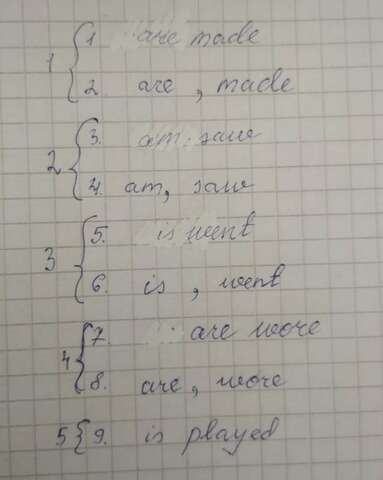 1 { 1. are made
2. are, made
2 { 3. am saw
4. am, saw
3 { 5. is went
6. is, went
4 { 7. are wore
8. are, wore
5 { 9. is played